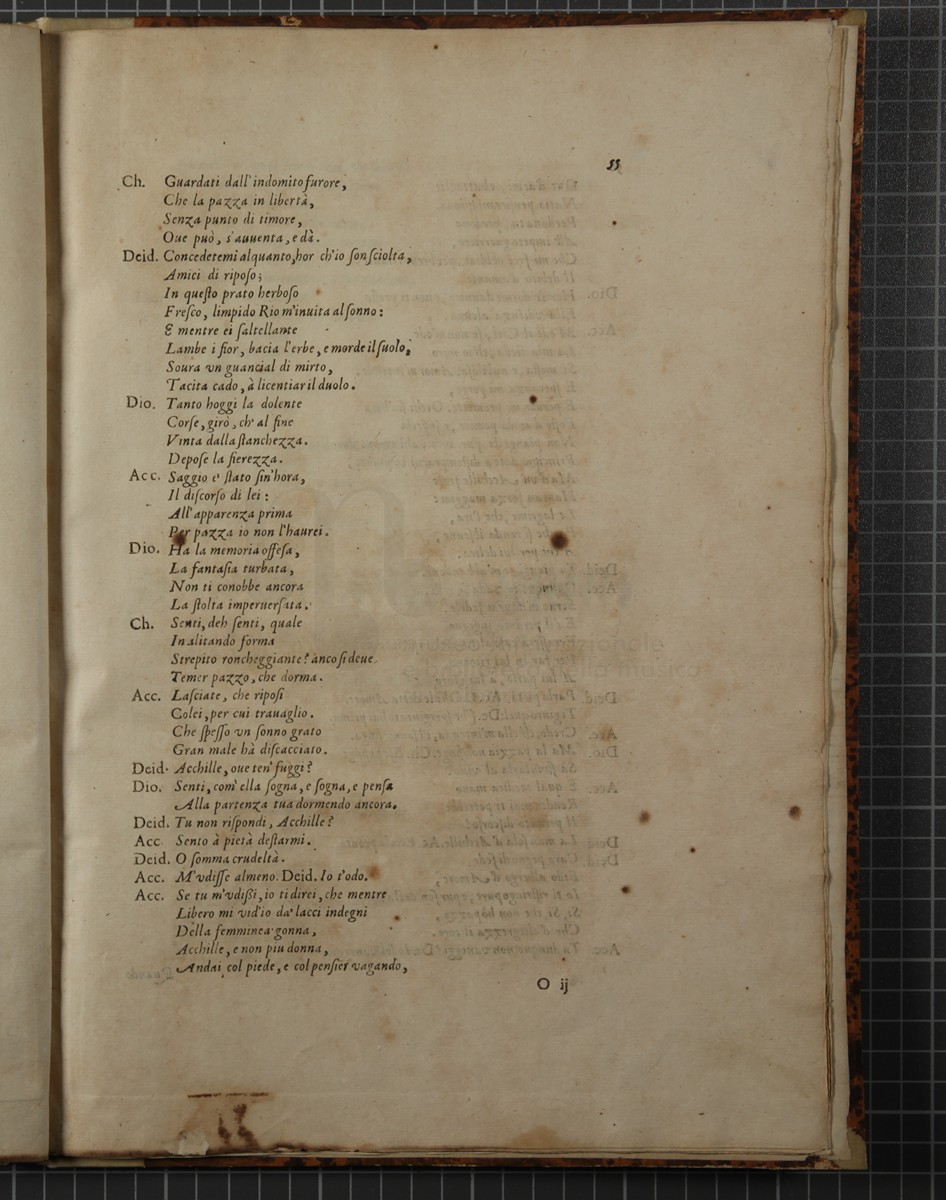 55
Ch. Guardati dall'indomito furore,
Che la pazza in libertà,
Senza punto di timore,
Oue può, s'auuenta, e dà.
Deid. Concedetemi alquanto, hor ch'io son sciolta,
Amici di riposo;
In questo prato herboso
Fresco, limpido Rio m'inuita al sonno:
E mentre ei saltellante
Lambe i fior, bacia l'erbe, e morde il suolo,
Soura vn guancial di mirto,
Tacita cado, à licentiar il duolo.
Dio. Tanto hoggi la dolente
Corse, girò, ch'al fine
Vinta dalla stanchezza.
Depose la fierezza.
Acc. Saggio e' stato fin'hora,
Il discorso di lei:
All'apparenza prima
Per pazza io non l'haurei.
Dio. Ha la memoria offesa,
La fantasia turbata,
Non ti conobbe ancora
La stolta imperuersata.
Ch. Senti, deh senti, quale
In alitando forma
Strepito roncheggiante? anco si deue
Temer pazzo, che dorma.
Acc. Lasciate, che riposi
Colei, per cui trauaglio.
Che spesso vn sonno grato
Gran male hà discacciato.
Deid. Acchille, oue ten' fuggi?
Dio. Senti, com' ella sogna, e sogna, e pensa
Alla partenza tua dormendo ancora.
Deid. Tu non rispondi, Acchille?
Acc Sento à pietà destarmi.
Deid. O somma crudeltà.
Acc. M'vdisse almeno. Deid. Io t'odo.
Acc. Se tu m'vdissi, io ti direi, che mentre
Libero mi vid'io da' lacci indegni
Della femminea gonna,
Acchille, e non piu donna,
Andai col piede, e col pensier vagando,
O ij